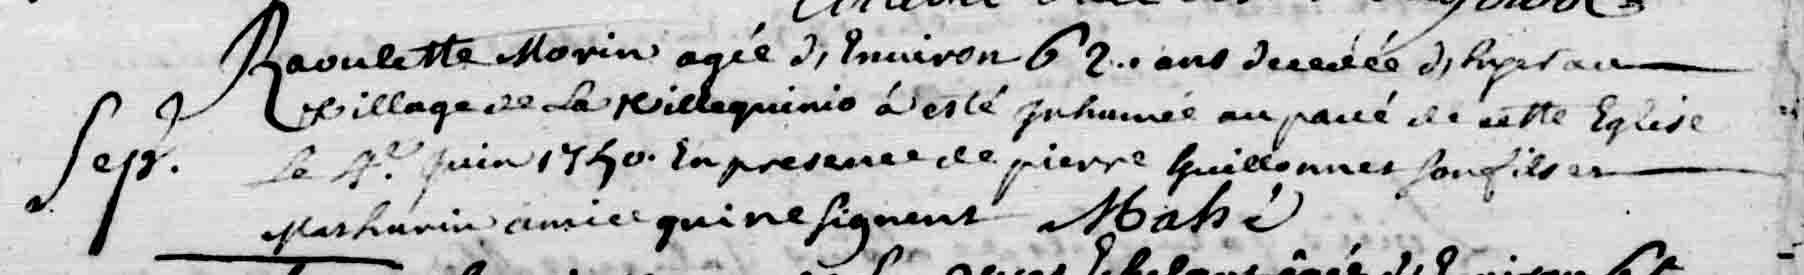 Raoulette Morin agée d'Environ 62 ans decedée d'hyer au
village de La villequinio a esté Inhumée au pavé de cette Eglise
Sep. Le 4e Juin 1740. En presence de pierre Guillonnet son fils et
Mathurin amice qui ne signent Mahé
agée d'Environ